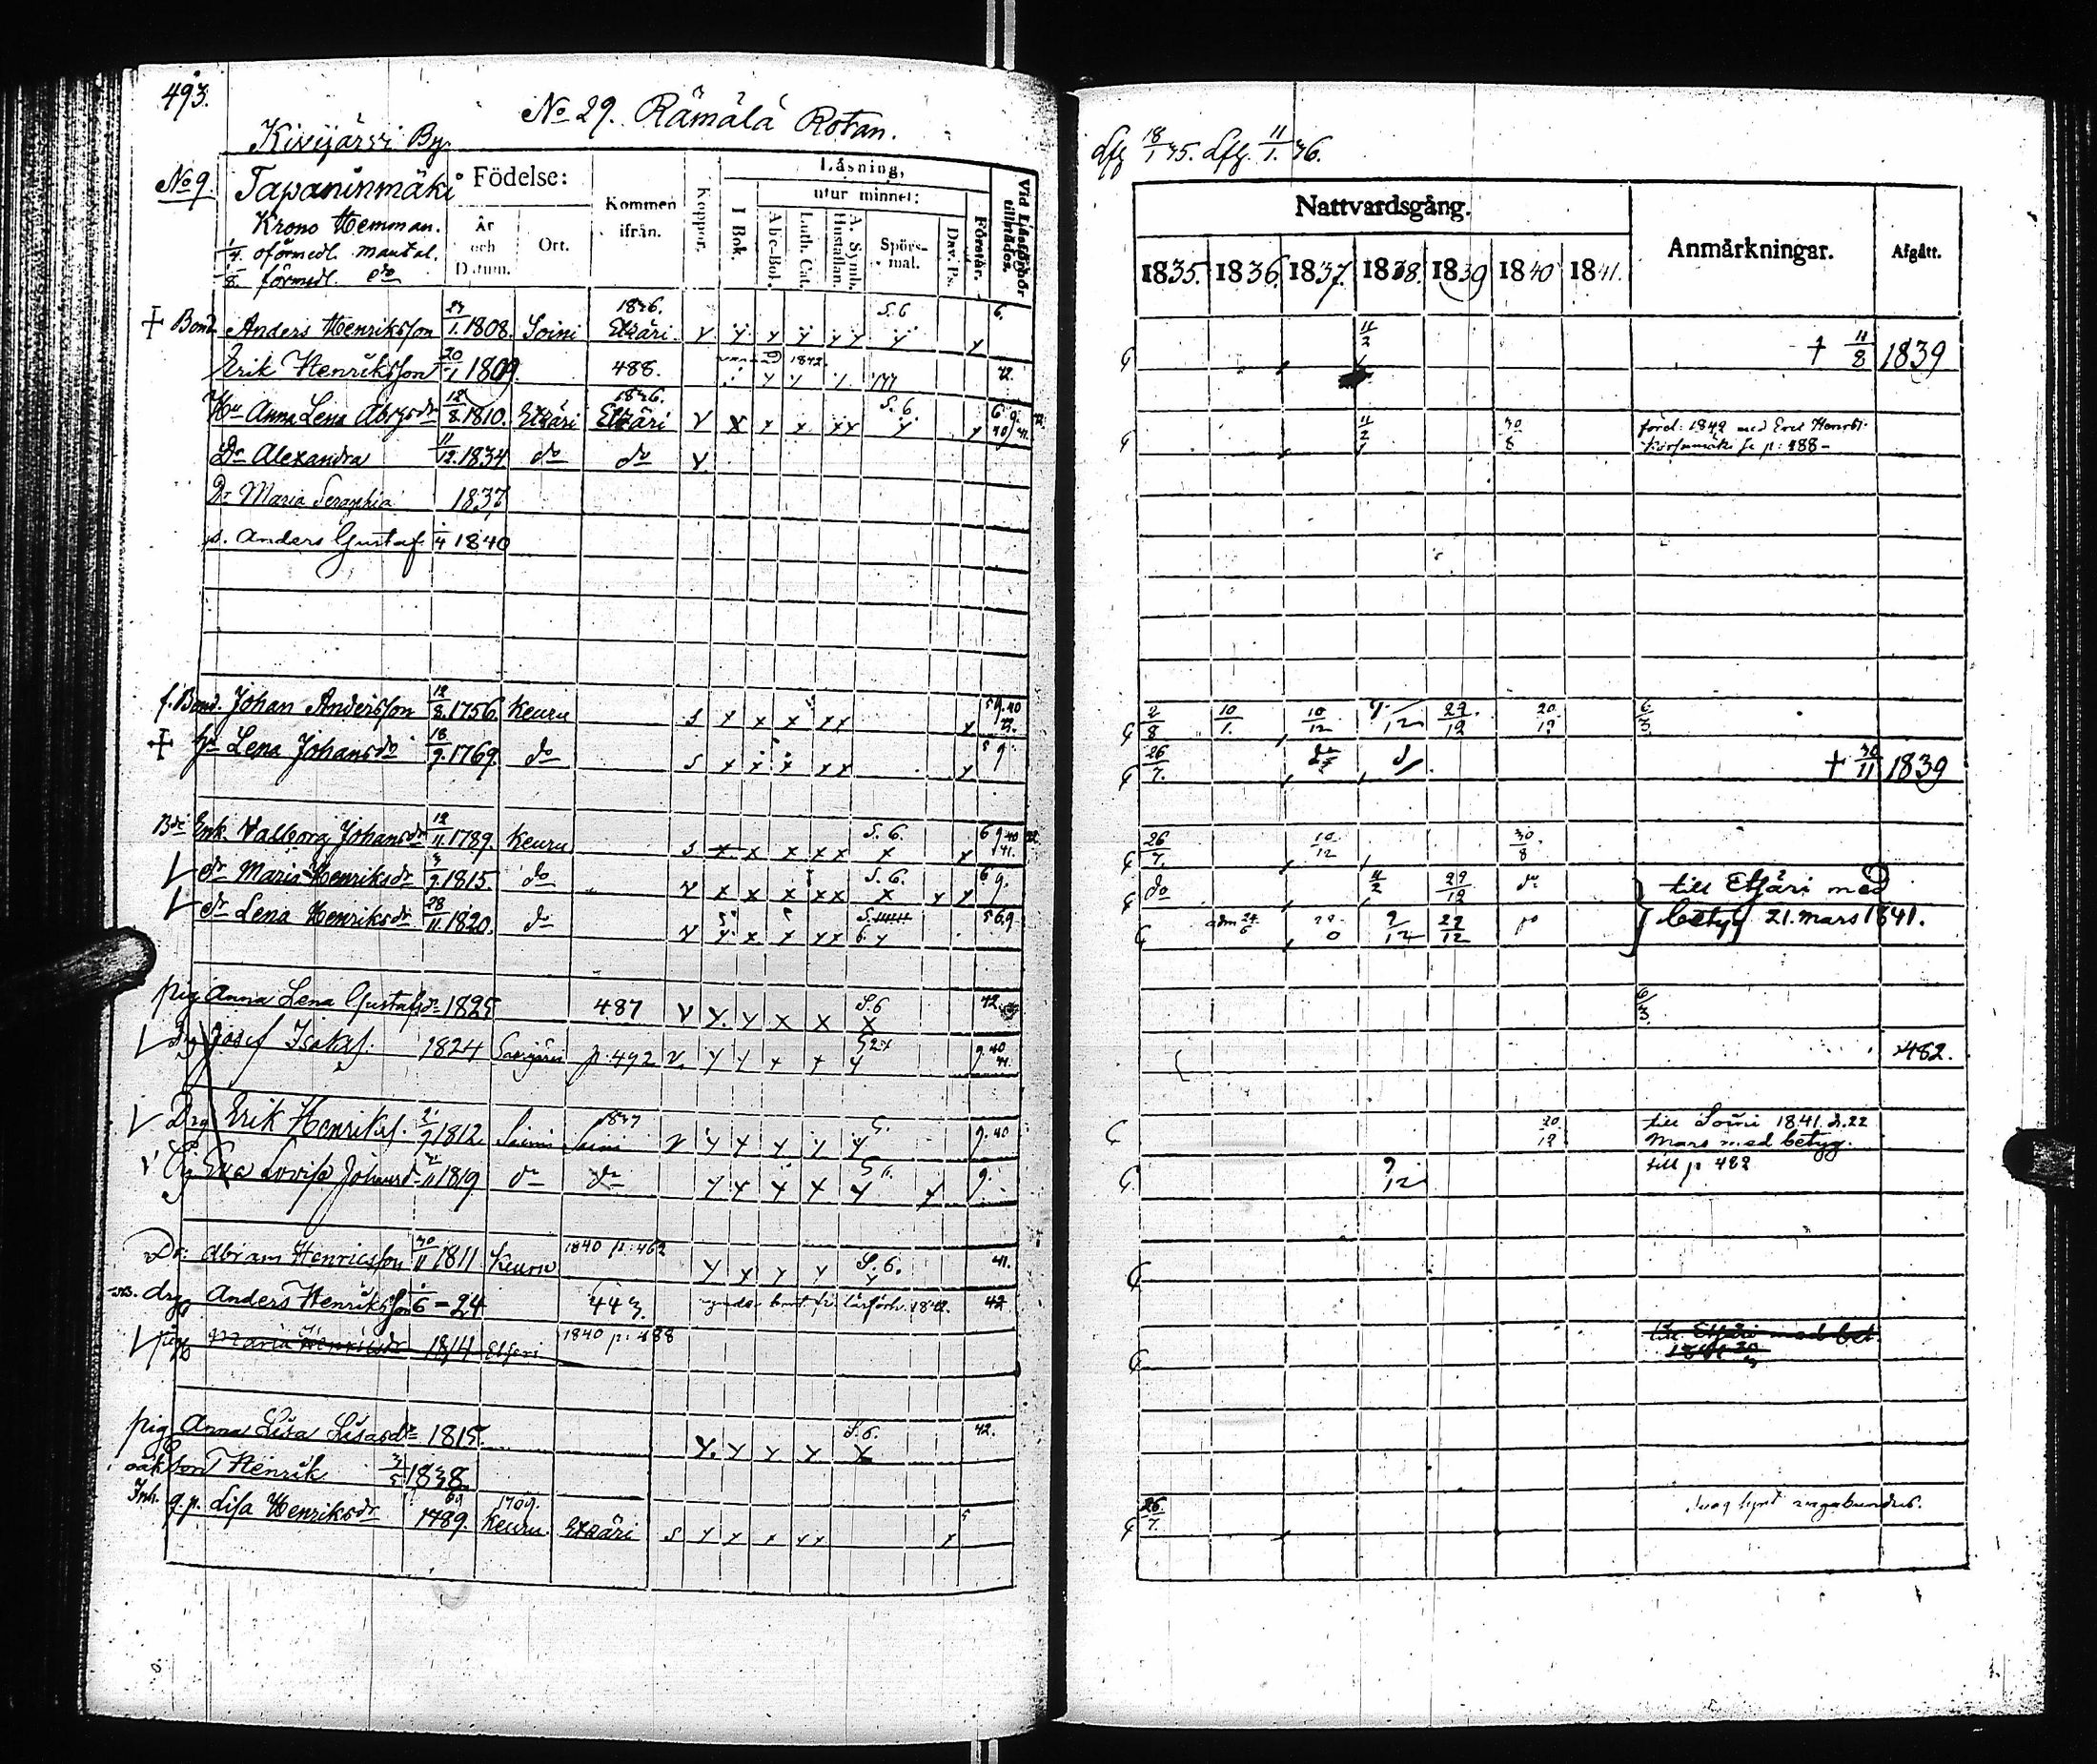 493.
No 29. Rämälä Rotan.
Kivijärvi By.
No 9. Tapaninmäki
Krono Hemman.
1/4 oförmedl. mantal.
1/8 förmedl. do
Födelse:
År och Datum.
Ort.
Kommen ifrån.
Koppor.
Läsning,
utur minnet:
I Bok.
Abc-Bok.
Luth. Cat.
Hustaflan.
A. Symb.
Spörs-mål.
Dav. Ps.
Förstår.
Vid Läsförhör tillstädes.
+ Bond. Anders Henriksson 27/1. 1808. Soini 1836. Etzäri v y y y y y S.6 y y 6.
Erik Henriksson 20/1 1809. 488. 1842 42.
Hu Anna Lena Abrsdr 18/8 1810. Etzäri 1836. Etzäri v x x x x x S.6. y y 6 9. 40/41. 42
Dr Alexandra 11/12. 1834 do do v
Dr Maria Seraphia 1837
s. Anders Gustaf 1/4 1840
f. Bond. Johan Andersson 12/8. 1756. Keuru s x x x x x x 5 9. 40 42.
+ hu Lena Johansdr 18/9. 1769. do s x x x x x x 5 9.
Enk. Valborg Johansdr 12/11. 1789. Keuru s x x x x x S.6. x x 6 9 40 41. 42
dr Maria Henriksdr 3/9. 1815. do v x x x x x S.6. x x x 6 9.
dr Lena Henriksdr 28/11. 1820. do v y x x x x 6. y 5 6 9
pig Anna Lena Gustafsdr 1825 487 v y. y x x S.6 x 42.
Drg Josef Isaksf. 1824 p. 492 v. y y x x y 9. 40 41.
Drg Erik Henriksf. 1812. Soini 1837 Soini v y y y y y 9. 40
Pig Eva Lovisa Johansdr 1819 do do y y y y y y 9.
Dr: Abram Henricsson 30/11 1811 Keuru 1840 p: 462 y y y y S.6. y 41.
drg Anders Henriksson 1/6 - 24 443. 42
pig Maria Henriksdr 1814 Etseri 1840 p: 488
pig Anna Lisa Lisasdr 1815. y. y y y S.6. x 42.
oäk. Son Henrik 3/5 1838.
Inh. q.p. Lisa Henriksdr 1789. 69 Keuru 1709. Etzäri s y y x y y y 5
Lfg 18/1 35. Lfg. 11/1. 36.
Nattvardsgång.
Anmärkningar.
Afgått.
1835. 1836. 1837. 1838. 1839 1840 1841.
11/2 † 11/8 1839
11/2 30/8 förel. 1842 med Eric Henrs. p: 488 -
2/8 10/1. 10/12 9/12 29/12 20/12 6/3.
26/7. + 30/11 1839
26/7. 10/12 30/8
do 11/2 29/12 do till Etsäri med
adm 24/6 9/12 22/12 betyg 21. mars 1841.
6/3.
462.
20/12 till Soini 1841. d. 22
Mars med betyg.
9/12 till p 482
till Etsäri med bet
26/7.